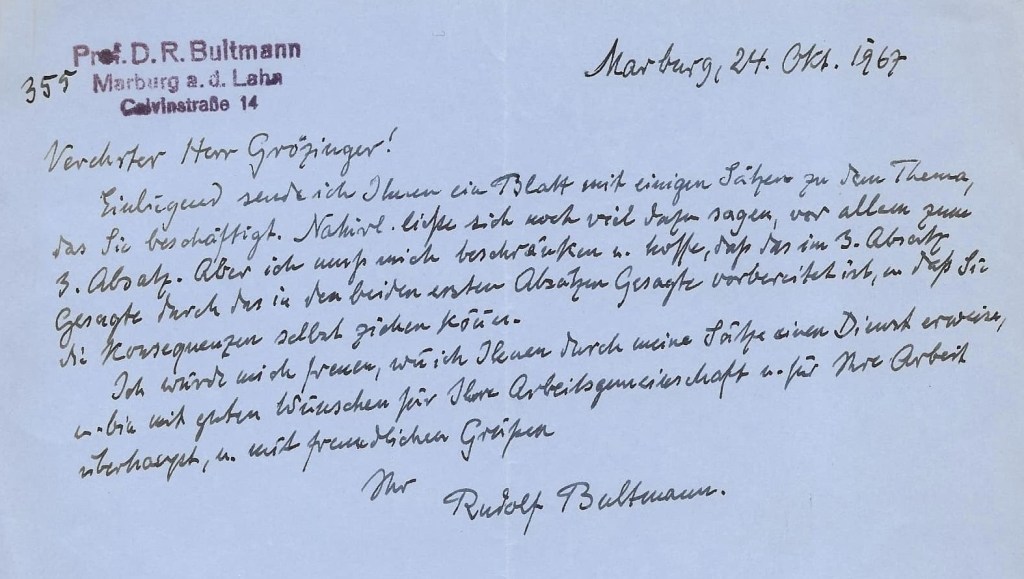 Prof. D. R. Bultmann
Marburg a. d. Lahn
Calvinstraße 14
355
Marburg, 24. Okt. 1967
Verehrter Herr Grözinger!
Einliegend sende ich Ihnen ein Blatt mit einigen Sätzen zu dem Thema,
das Sie beschäftigt. Natürl. ließe sich noch viel dazu sagen, vor allem zum
3. Absatz. Aber ich muß mich beschränken u. hoffe, daß das im 3. Absatz
Gesagte durch das in den beiden ersten Absätzen Gesagte vorbereitet ist, u. daß Sie
die Konsequenzen selbst ziehen könn.
Ich würde mich freuen, wenn ich Ihnen durch meine Sätze einen Dienst erweise,
u. bin mit guten Wünschen für Ihre Arbeitsgemeinschaft u. für Ihre Arbeit
überhaupt, u. mit freundlichen Grüßen
Ihr
Rudolf Bultmann.